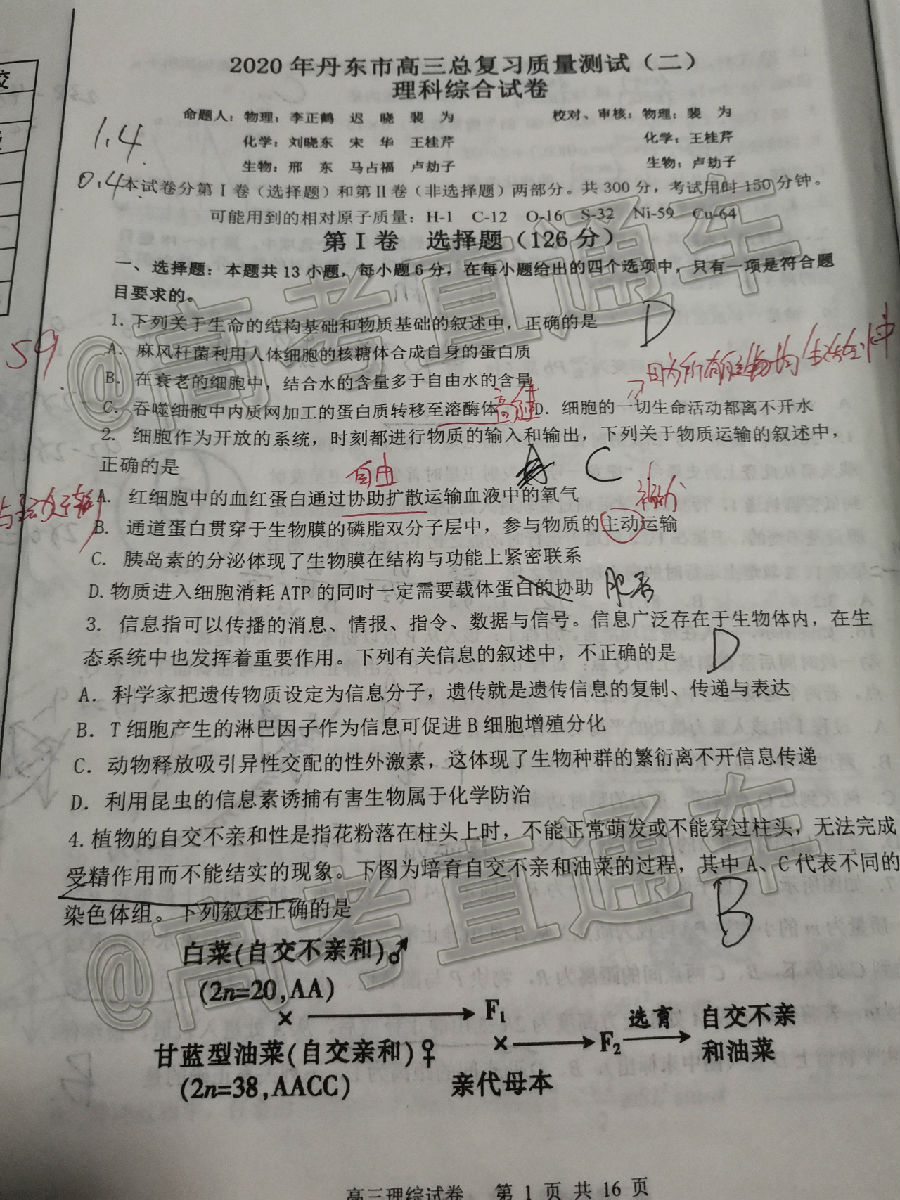 2020年丹东市高三总复习质量测试（二）
理科综合试卷
命题人：物理：李正鹤 迟 晓 裴 为 校对、审核：物理：裴 为
化学：刘晓东 宋 华 王桂芹 化学：王桂芹
生物：邢 东 马占福 卢劫子 生物：卢劫子
1.4
0.4
本试卷分第Ⅰ卷（选择题）和第Ⅱ卷（非选择题）两部分。共300分，考试用时150分钟。
可能用到的相对原子质量：H-1 C-12 O-16 S-32 Ni-59 Cu-64
第Ⅰ卷 选择题（126分）
一、选择题：本题共13小题，每小题6分，在每小题给出的四个选项中，只有一项是符合题
目要求的。
@高考直通车
1.下列关于生命的结构基础和物质基础的叙述中，正确的是 D
A．麻风杆菌利用人体细胞的核糖体合成自身的蛋白质
59
B．在衰老的细胞中，结合水的含量多于自由水的含量
C．吞噬细胞中内质网加工的蛋白质转移至溶酶体 D．细胞的一切生命活动都离不开水
2. 细胞作为开放的系统，时刻都进行物质的输入和输出，下列关于物质运输的叙述中，
正确的是 C
自由
A．红细胞中的血红蛋白通过协助扩散运输血液中的氧气
B．通道蛋白贯穿于生物膜的磷脂双分子层中，参与物质的主动运输
C．胰岛素的分泌体现了生物膜在结构与功能上紧密联系
D.物质进入细胞消耗ATP的同时一定需要载体蛋白的协助 胞吞
3. 信息指可以传播的消息、情报、指令、数据与信号。信息广泛存在于生物体内，在生
态系统中也发挥着重要作用。下列有关信息的叙述中，不正确的是 D
A．科学家把遗传物质设定为信息分子，遗传就是遗传信息的复制、传递与表达
B．T细胞产生的淋巴因子作为信息可促进B细胞增殖分化
C．动物释放吸引异性交配的性外激素，这体现了生物种群的繁衍离不开信息传递
D．利用昆虫的信息素诱捕有害生物属于化学防治
4.植物的自交不亲和性是指花粉落在柱头上时，不能正常萌发或不能穿过柱头，无法完成
受精作用而不能结实的现象。下图为培育自交不亲和油菜的过程，其中A、C代表不同的
染色体组。下列叙述正确的是 B
@高考直通车
白菜(自交不亲和)♂
(2n=20,AA)
× F₁
甘蓝型油菜(自交亲和)♀
(2n=38,AACC)
× F₂ 选育 自交不亲
和油菜
亲代母本
高三理综试卷 第 1 页 共 16 页